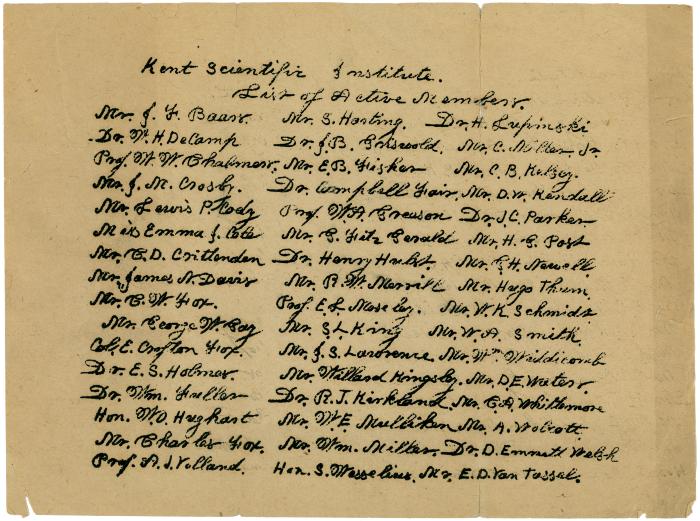 Kent Scientific Institute.
List of Active Members.
Mr. J. F. Baars. Mr. S. Horting. Dr. H. Lupinski
Dr. W. H. DeCamp Dr. J. B. Griswold. Mr. C. Miller Jr.
Prof. W. W. Chalmers. Mr. E. B. Fisher Mr. C. B. Kelsey.
Mr. J. M. Crosby. Dr. Campbell Fair. Mr. D. W. Kendall
Mr. Lewis P. Cody Prof. W. A. Greeson Dr. J. C. Parker
Miss Emma J. Cole Mr. C. Fitz Gerald Mr. H. C. Post
Mr. C. D. Crittenden Dr. Henry Hulst. Mr. C. H. Newell
Mr. James N. Davis Mr. R. W. Merrill Mr. Hugo Thum.
Mr. C. W. Fox. Prof. E. L. Moseley. Mr. W. K. Schmidt
Mr. George W. Gay Mr. S. L. King Mr. W. A. Smith.
Col. E. Crofton Fox. Mr. J. S. Lawrence. Mr. Wm Widdicomb
Dr. E. S. Holmes. Mr. Willard Kingsley. Mr. D E Waters.
Dr. Wm. Fuller Dr. R. J. Kirkland. Mr. C. A. Whittemore
Hon. W. D. Hughart Mr. W. E. Mulliken. Mr. A. Wolcott.
Mr. Charles Fox. Mr. Wm. Miller. Dr. D. Emmett Welsh
Prof. A. J. Volland. Hon. S. Wesselius. Mr. E. D. Van Tassel.